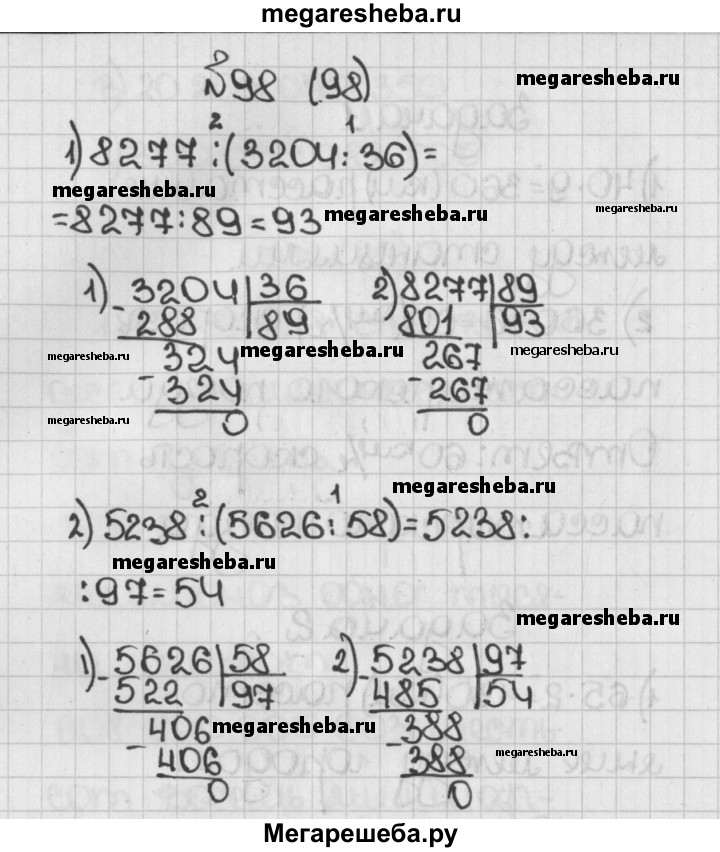 megaresheba.ru
№98 (98)
megaresheba.ru
2 1
1) 8277:(3204:36)=
megaresheba.ru
=8277:89=93
megaresheba.ru
megaresheba.ru
1) 3204 36 2) 8277 89
- 288 89 801 93
megaresheba.ru
324 megaresheba.ru 267 megaresheba.ru
- 324 - 267
megaresheba.ru
0 0
megaresheba.ru
2 1
2) 5238:(5626:58)=5238:
megaresheba.ru
:97=54
megaresheba.ru
1) - 5626 58 2) - 5238 97
522 97 485 54
406 megaresheba.ru - 388
- 406 388 megaresheba.ru
0 0
Мегарешеба.ру